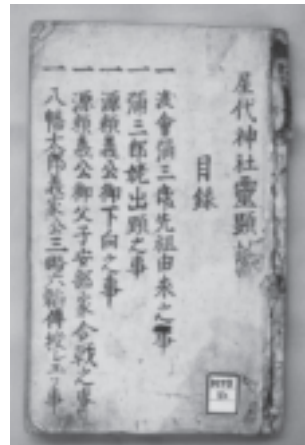 屋代神社靈顕
目録
一 渡會弥三郎先祖由来之事
一 彌三郎姥出顕之事
一 源頼義公御下向之事
一 源頼義公御父子安部家合戦之事
一 八幡太郎義家公三略六韜傳授之事